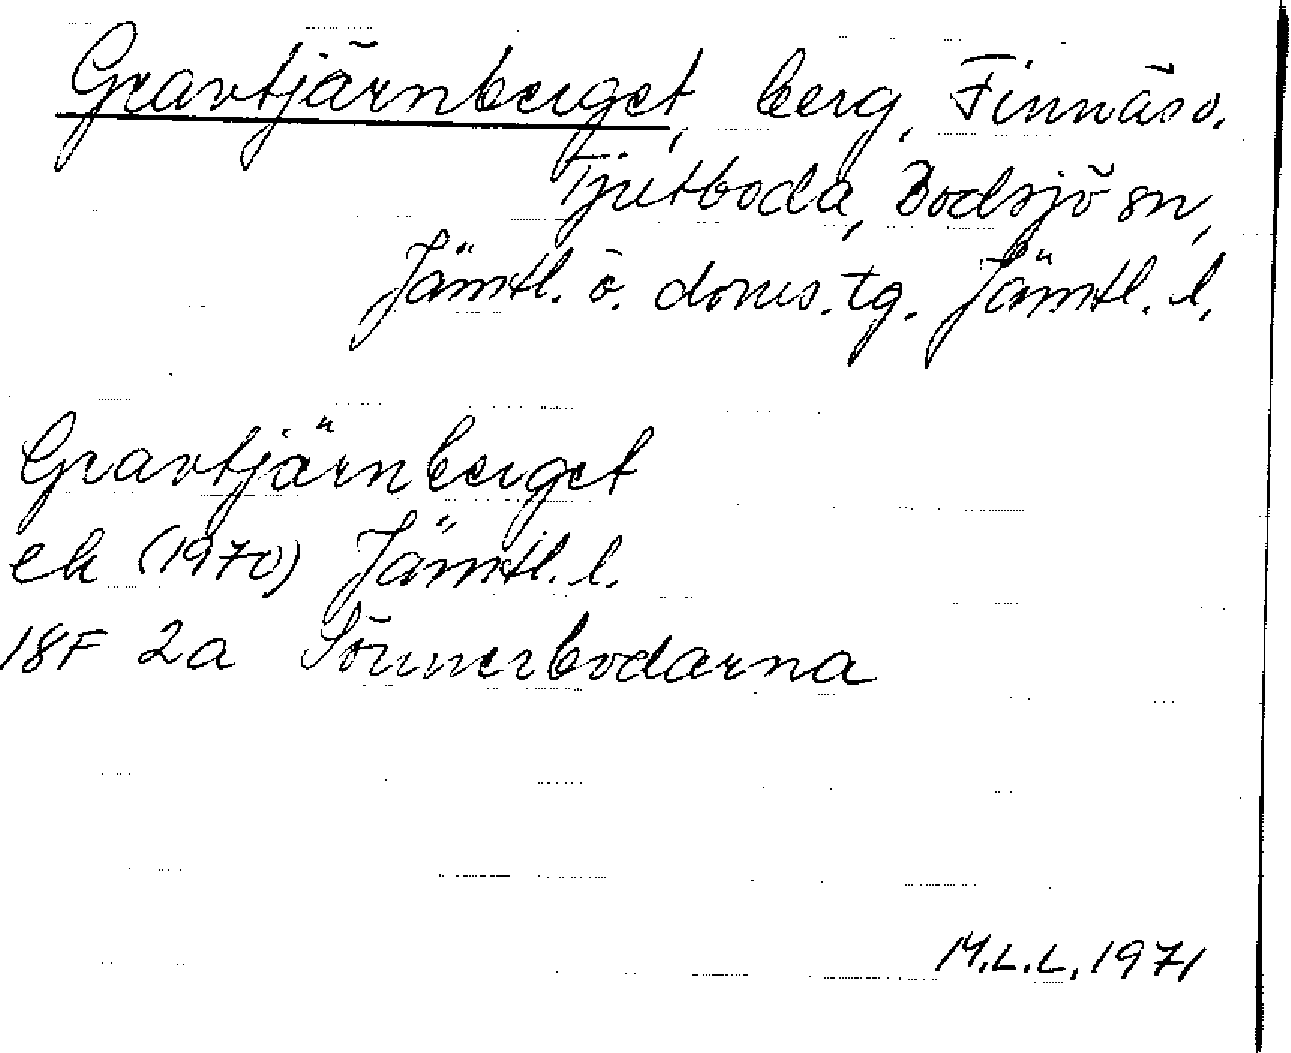 Gravtjärnberget, berg, Finnäs o.
Tjutboda, Bodsjö sn,
Jämtl. ö. doms. tg. Jämtl. l.
Gravtjärnberget
ek (1970) Jämtl. l.
18F 2a Sönnerbodarna
M.L.L. 1971